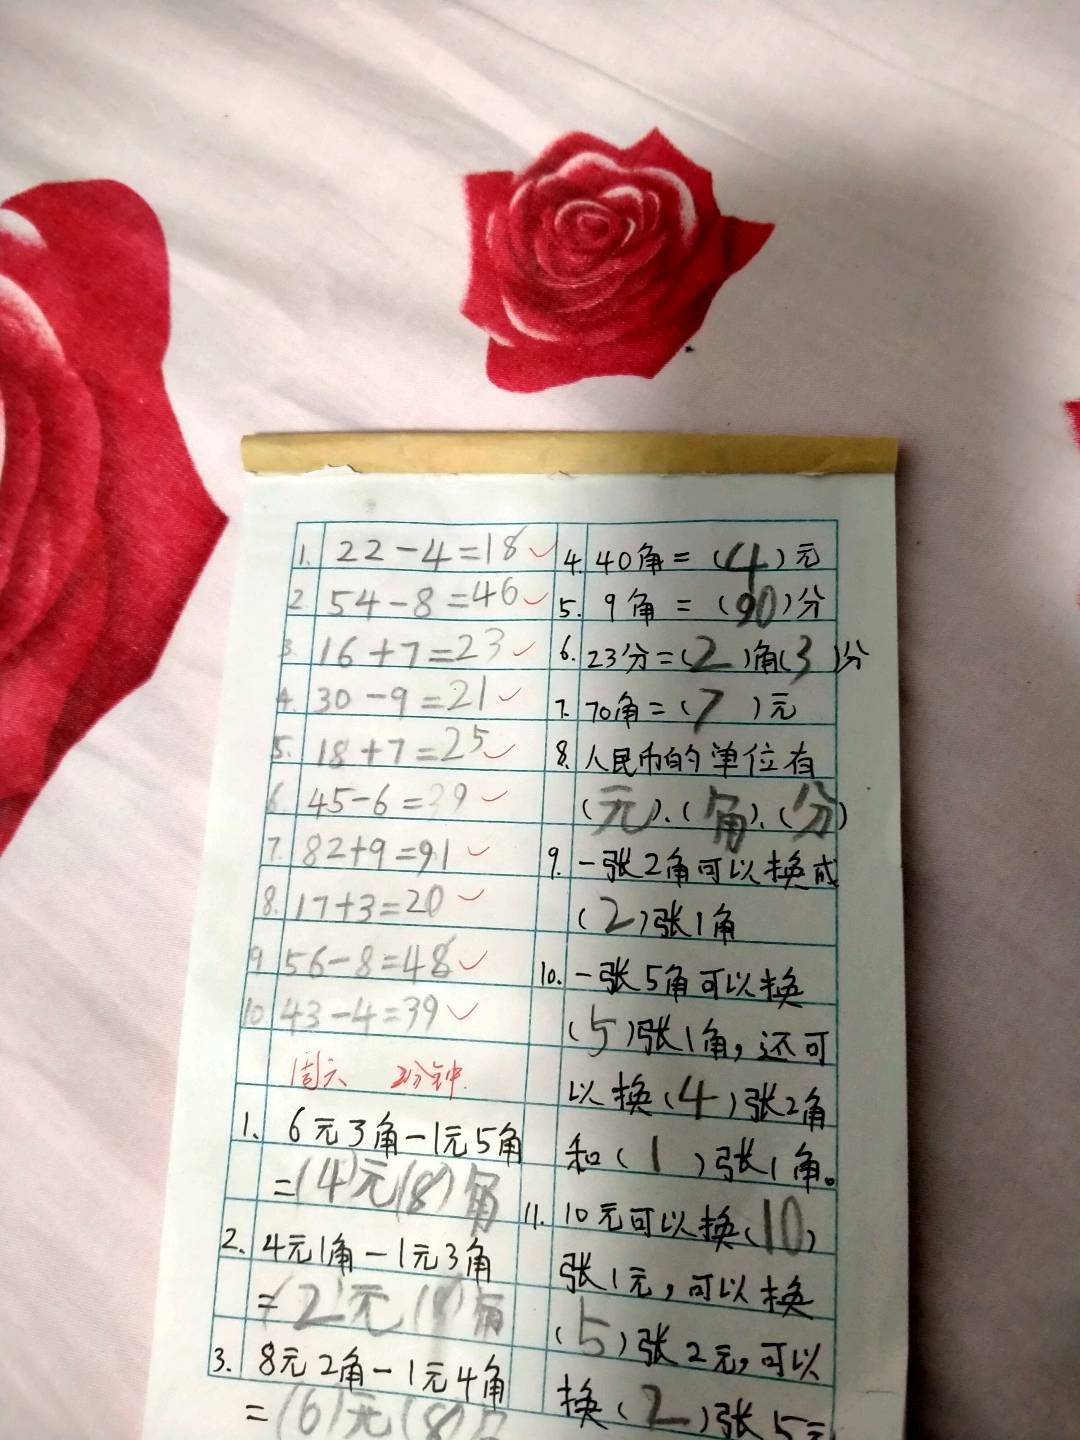 1. 22-4=18
2 54-8=46
3. 16+7=23
4. 30-9=21
5. 18+7=25
6. 45-6=39
7. 82+9=91
8. 17+3=20
9 56-8=48
10. 43-4=39
周六 2分钟.
1. 6元3角-1元5角
=(4)元(8)角
2. 4元1角-1元3角
=(2)元(8)角
3. 8元2角-1元4角
=(6)元(8)
4. 40角=(4)元
5. 9角=(90)分
6. 23分=(2)角(3)分
7. 70角=(7)元
8. 人民币的单位有
(元)、(角)、(分)
9. 一张2角可以换成
(2)张1角
10. 一张5角可以换
(5)张1角,还可
以换(4)张2角
和(1)张1角。
11. 10元可以换(10)
张1元,可以换
(5)张2元,可以
换(2)张5元